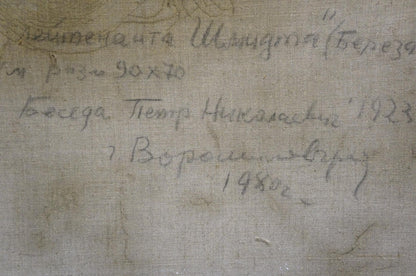 Лейтенанта Шмидта" (Береза
х.м разм 90х70
Беседа Петр Николаевич 1923
г Ворошиловград
1980г.